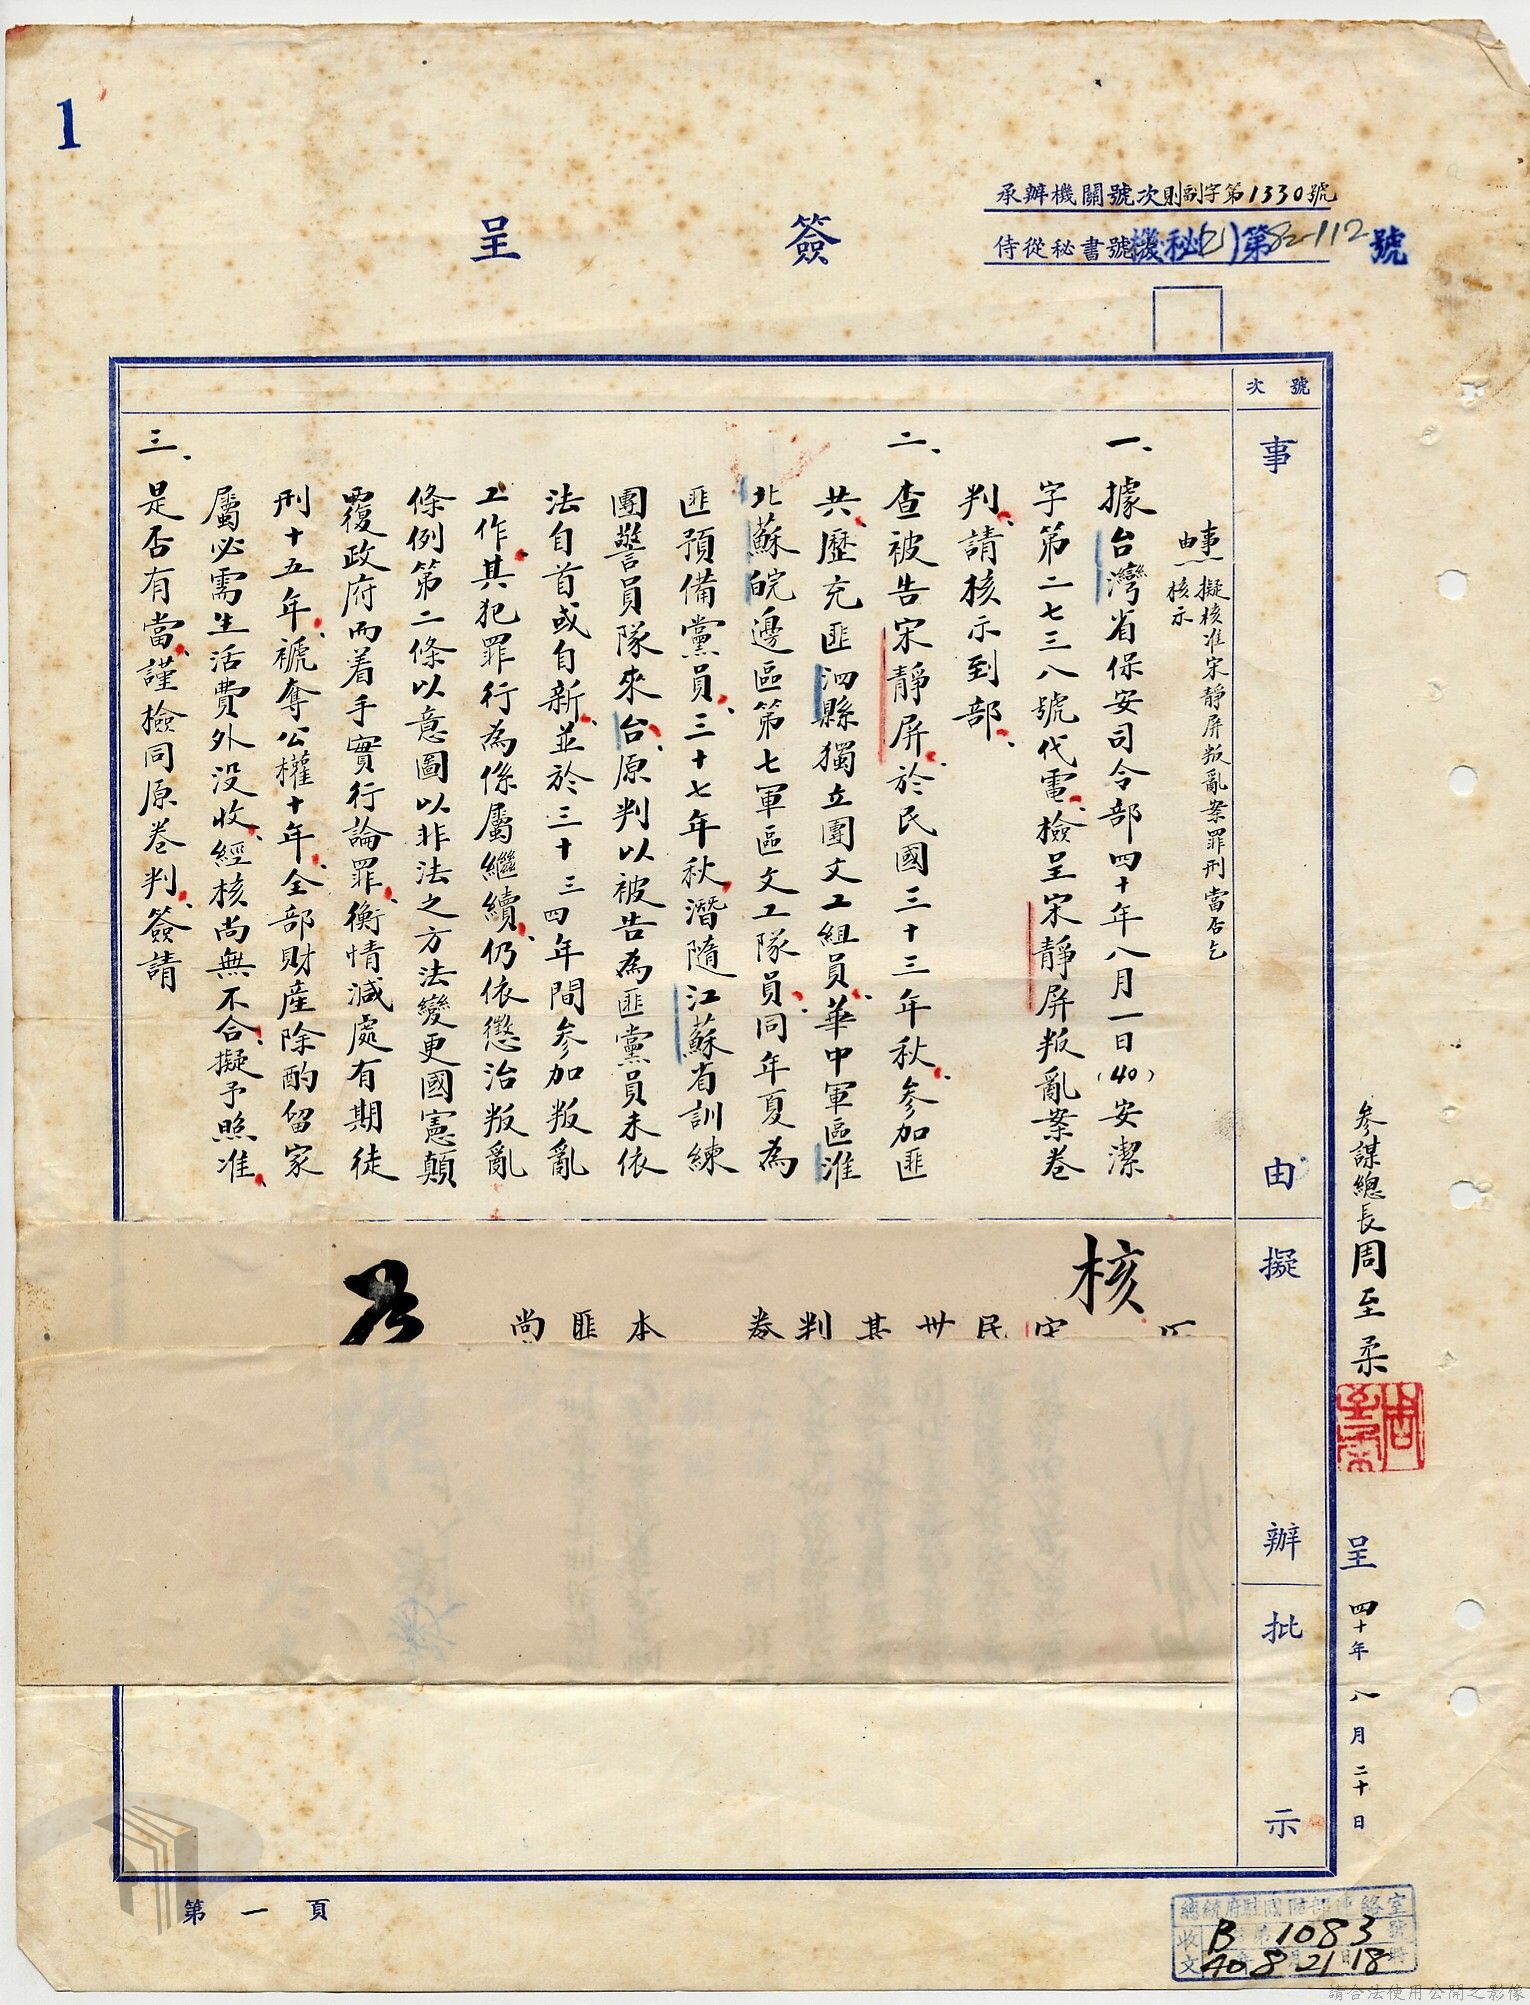 1
承辦機關號次則副字第1330號
侍從秘書號次機秘(乙)第82-112號
簽呈
號次
事由
擬辦
批示
事由：擬核准宋靜屏叛亂案罪刑當否乞
核示
一、據台灣省保安司令部四十年八月一日(40)安潔
字第二七三八號代電、檢呈宋靜屏叛亂案卷
判、請核示到部、
二、查被告宋靜屏、於民國三十三年秋、參加匪
共、歷充匪泗縣獨立團文工組員、華中軍區淮
北蘇皖邊區第七軍區文工隊員、同年夏為
匪預備黨員、三十七年秋、潛隨江蘇省訓練
團警員隊來台、原判以被告為匪黨員未依
法自首或自新、並於三十三四年間參加叛亂
工作、其犯罪行為係屬繼續、仍依懲治叛亂
條例第二條以意圖以非法之方法變更國憲顛
覆政府而着手實行論罪、衡情減處有期徒
刑十五年、褫奪公權十年、全部財產除酌留家
屬必需生活費外沒收、經核尚無不合、擬予照准、
三、是否有當、謹檢同原卷判、簽請
核
宋
民
卅
其
判
卷
本
匪
尚
參謀總長周至柔
周至柔
呈
四十年八月二十日
第一頁
總統府駐國防部連絡室
收文
B第1083號
40年8月21日18時
請合法使用公開之影像